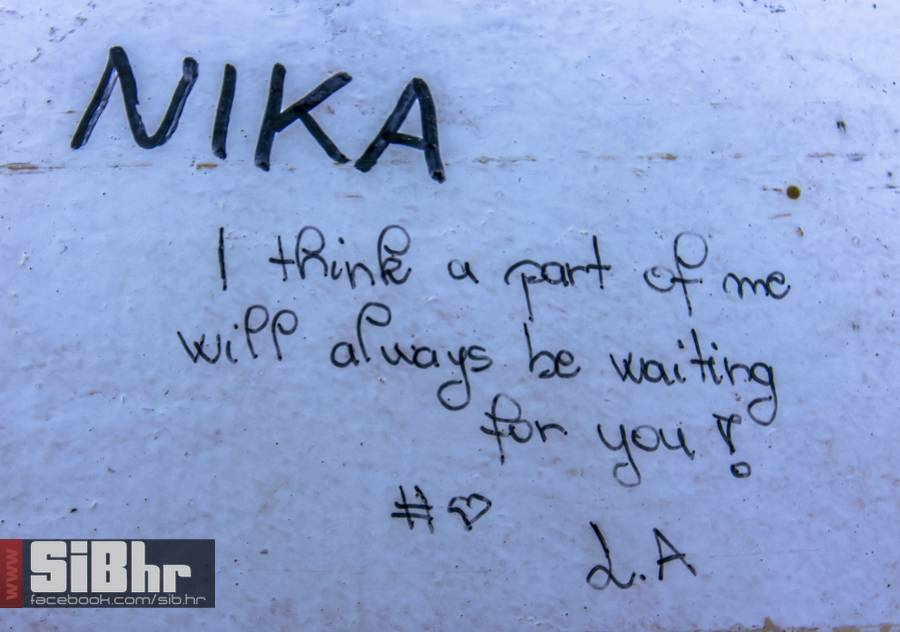 NIKA
I think a part of me
will always be waiting
for you!
#♡
L.A
www
SiBhr
facebook.com/sib.hr